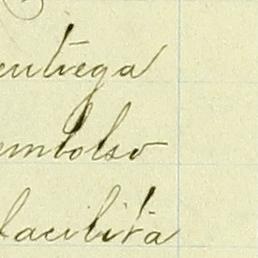 entrega
embolso
facilita